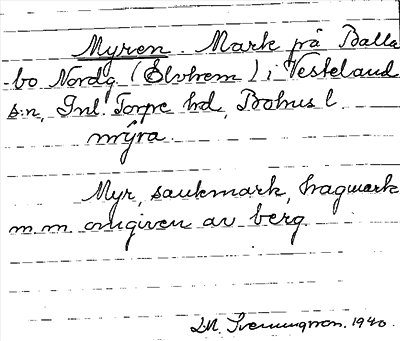 Myren. Mark på Balla-
bo Nordg (Elvhem) i Vesteland
s:n, Inl. Torpe hd, Bohus l.
mýra.
Myr, sankmark, hagmark
m.m omgiven av berg.
1940.